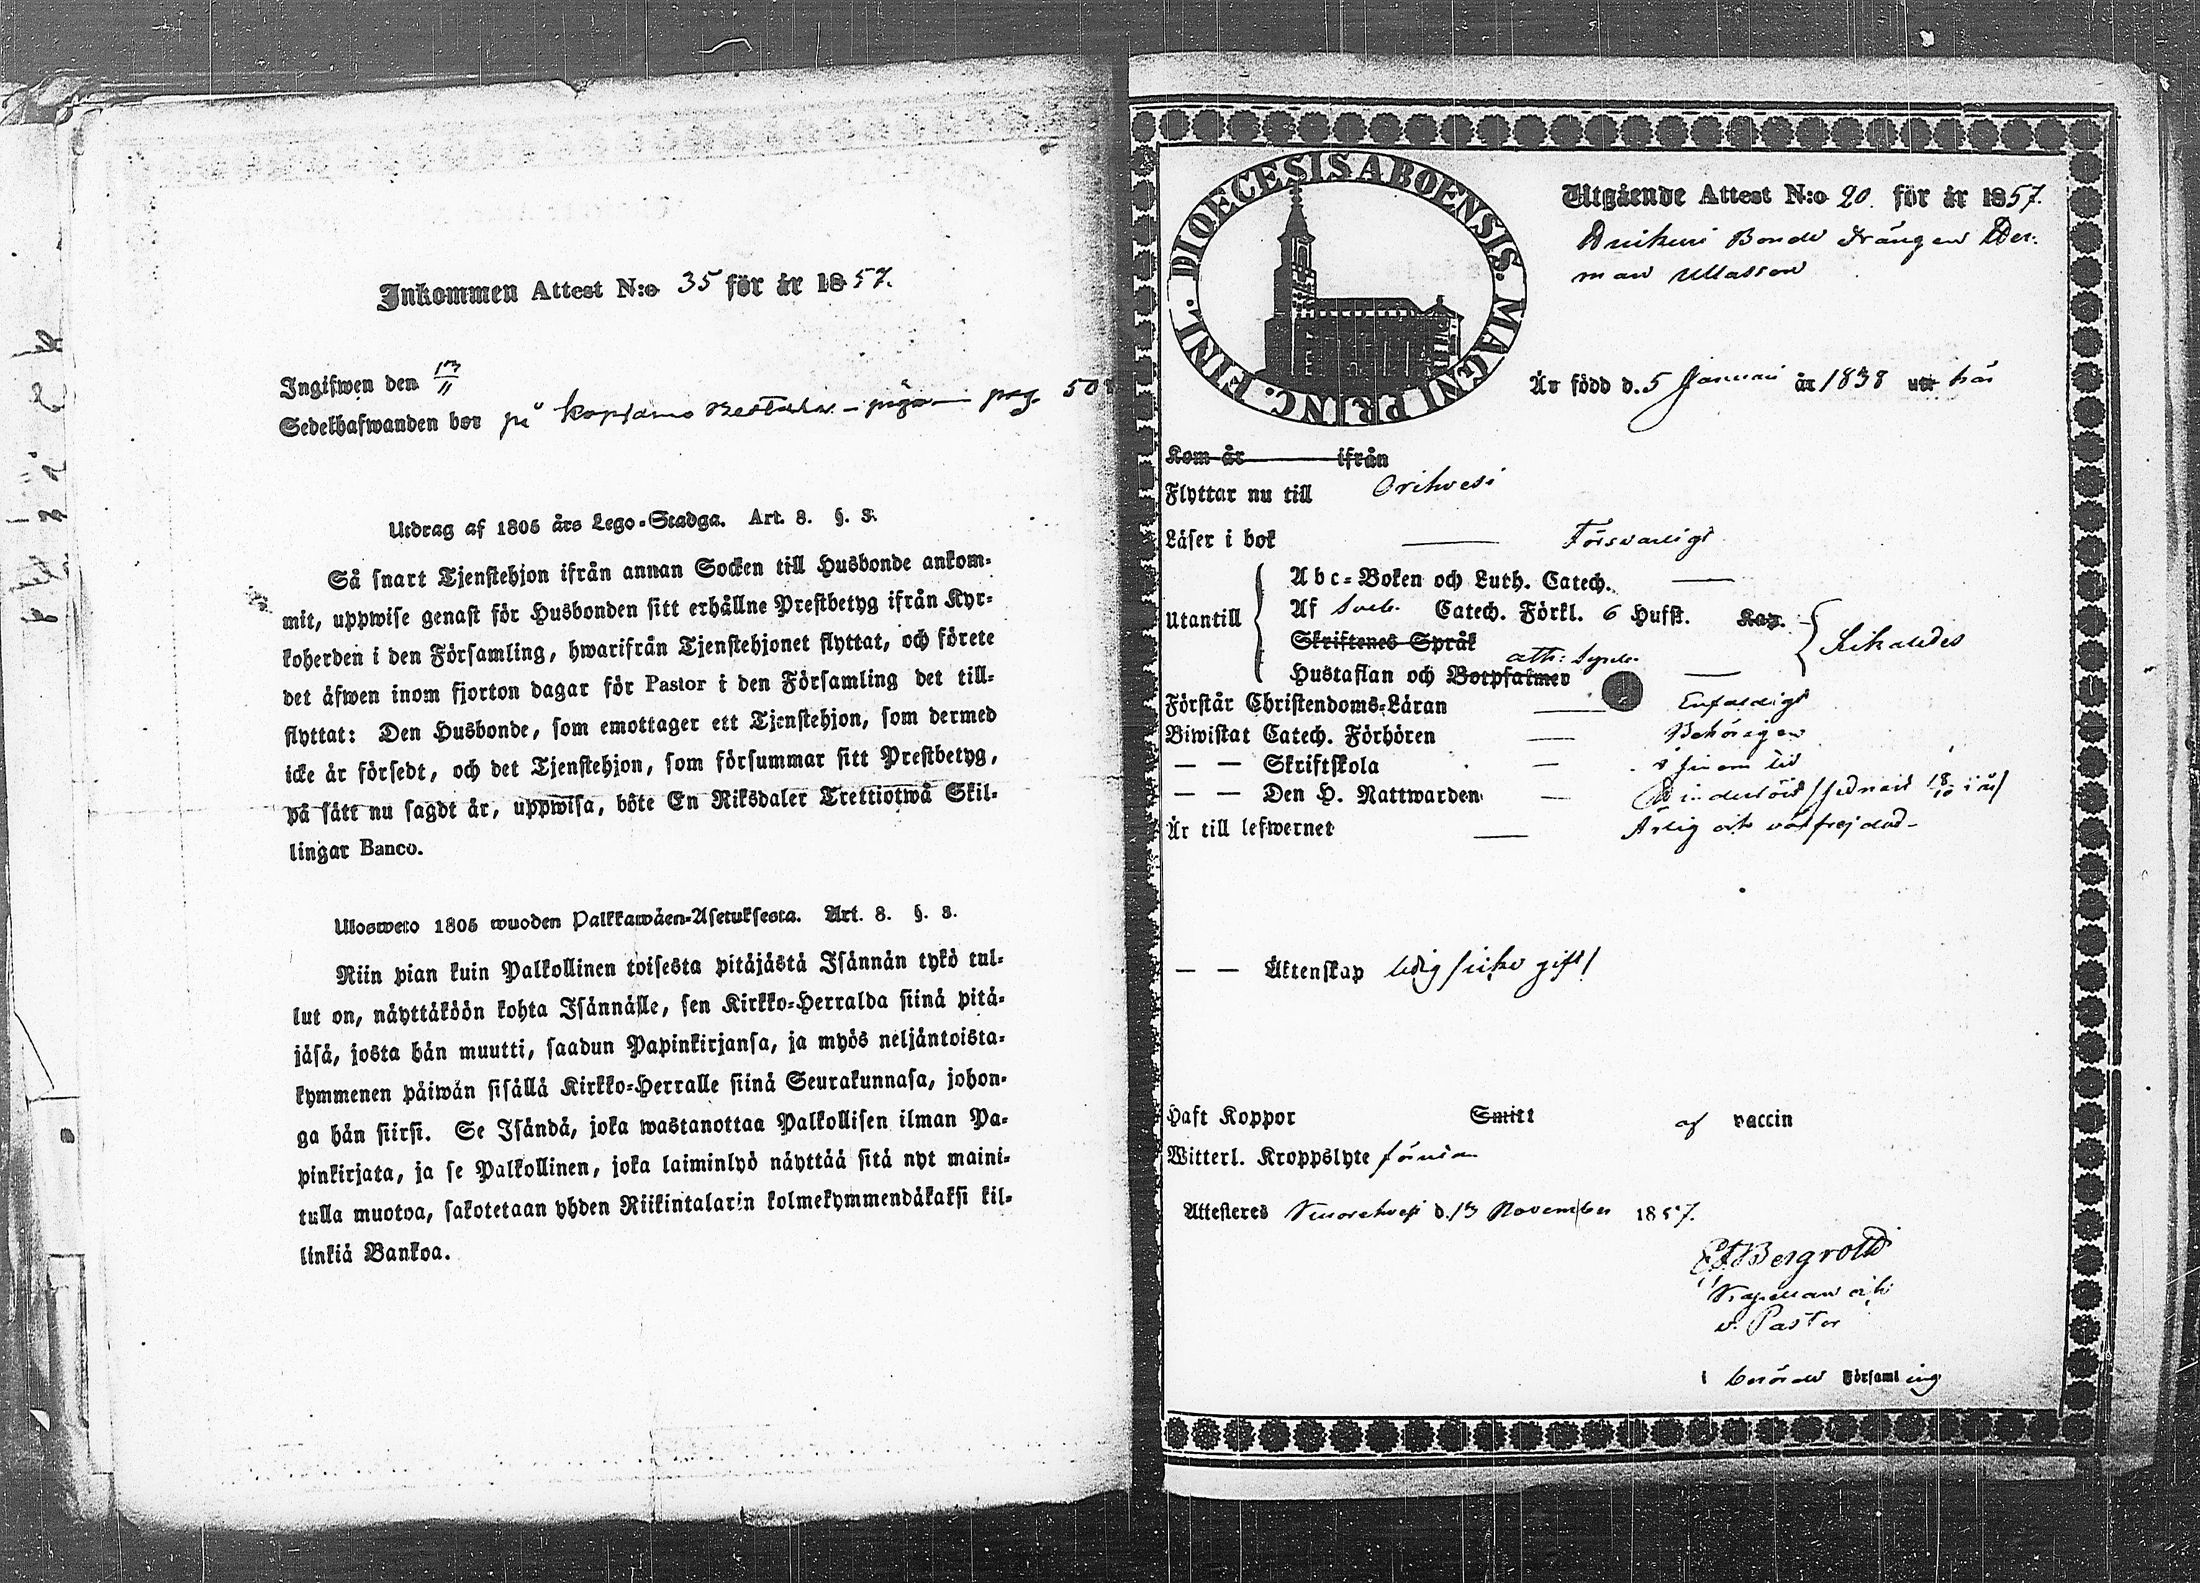 Inkommen Attest N:o 35 för år 1857.
Ingifwen den 13/11
Sedelhafwanden bor på pag. 508
Utdrag af 1805 års Lego-Stadga. Art. 8. §. 3.
Så snart Tjenstehjon ifrån annan Socken till Husbonde ankom-
mit, uppwise genast för Husbonden sitt erhållne Prestbetyg ifrån Kyr-
koherden i den Församling, hwarifrån Tjenstehjonet flyttat, och förete
det äfwen inom fjorton dagar för Pastor i den Församling det till-
flyttat: Den Husbonde, som emottager ett Tjenstehjon, som dermed
icke är försedt, och det Tjenstehjon, som försummar sitt Prestbetyg,
på sätt nu sagdt är, uppwisa, böte En Riksdaler Trettiotwå Skil-
lingar Banco.
Ulosweto 1805 wuoden Palkkawäen-Asetuksesta. Art. 8. §. 3.
Niin pian kuin Palkollinen toisesta pitäjästä Isännän tykö tul-
lut on, näyttäköön kohta Isännälle, sen Kirkko-Herralda siinä pitä-
jäsä, josta hän muutti, saadun Papinkirjansa, ja myös neljäntoista-
kymmenen päiwän sisällä Kirkko-Herralle siinä Seurakunnasa, johon-
ga hän siirsi. Se Isändä, joka wastanottaa Palkollisen ilman Pa-
pinkirjata, ja se Palkollinen, joka laiminlyö näyttää sitä nyt maini-
tulla muotoa, sakotetaan yhden Riikintalarin kolmekymmendäkaksi kil-
linkiä Bankoa.
DIOECESIS ABOENSIS. MAGNI PRINC. FINL.
Utgående Attest N:o 20 för år 1857.
Bonde Drängen Her-
man Mattson
Är född d. 5 Januari år 1838 uti här
Kom år ifrån
Flyttar nu till Orihvesi
Läser i bok Försvarligt
Utantill
Abc-Boken och Luth. Catech.
Af Sveb. Catech. Förkl. 6 Hufst. Kap.
Skriftenes Språk
Hustaflan och Botpsalmer ath: Symb.
Förstår Christendoms-Läran Enfaldigt
Biwistat Catech. Förhören Behörigen
— — Skriftskola i sinom tid
— — Den H. Nattwarden sednast 18/10 i år
Är till lefwernet Ärlig och välfrejdad
— — Äktenskap ledig (icke gift)
Haft Koppor Smitt af vaccin
Witterl. Kroppslyte förutan
Attesteres Kuorehvesi d. 13 November 1857.
Bergroth
Kapellan och
v. Pastor
i berörde Församling